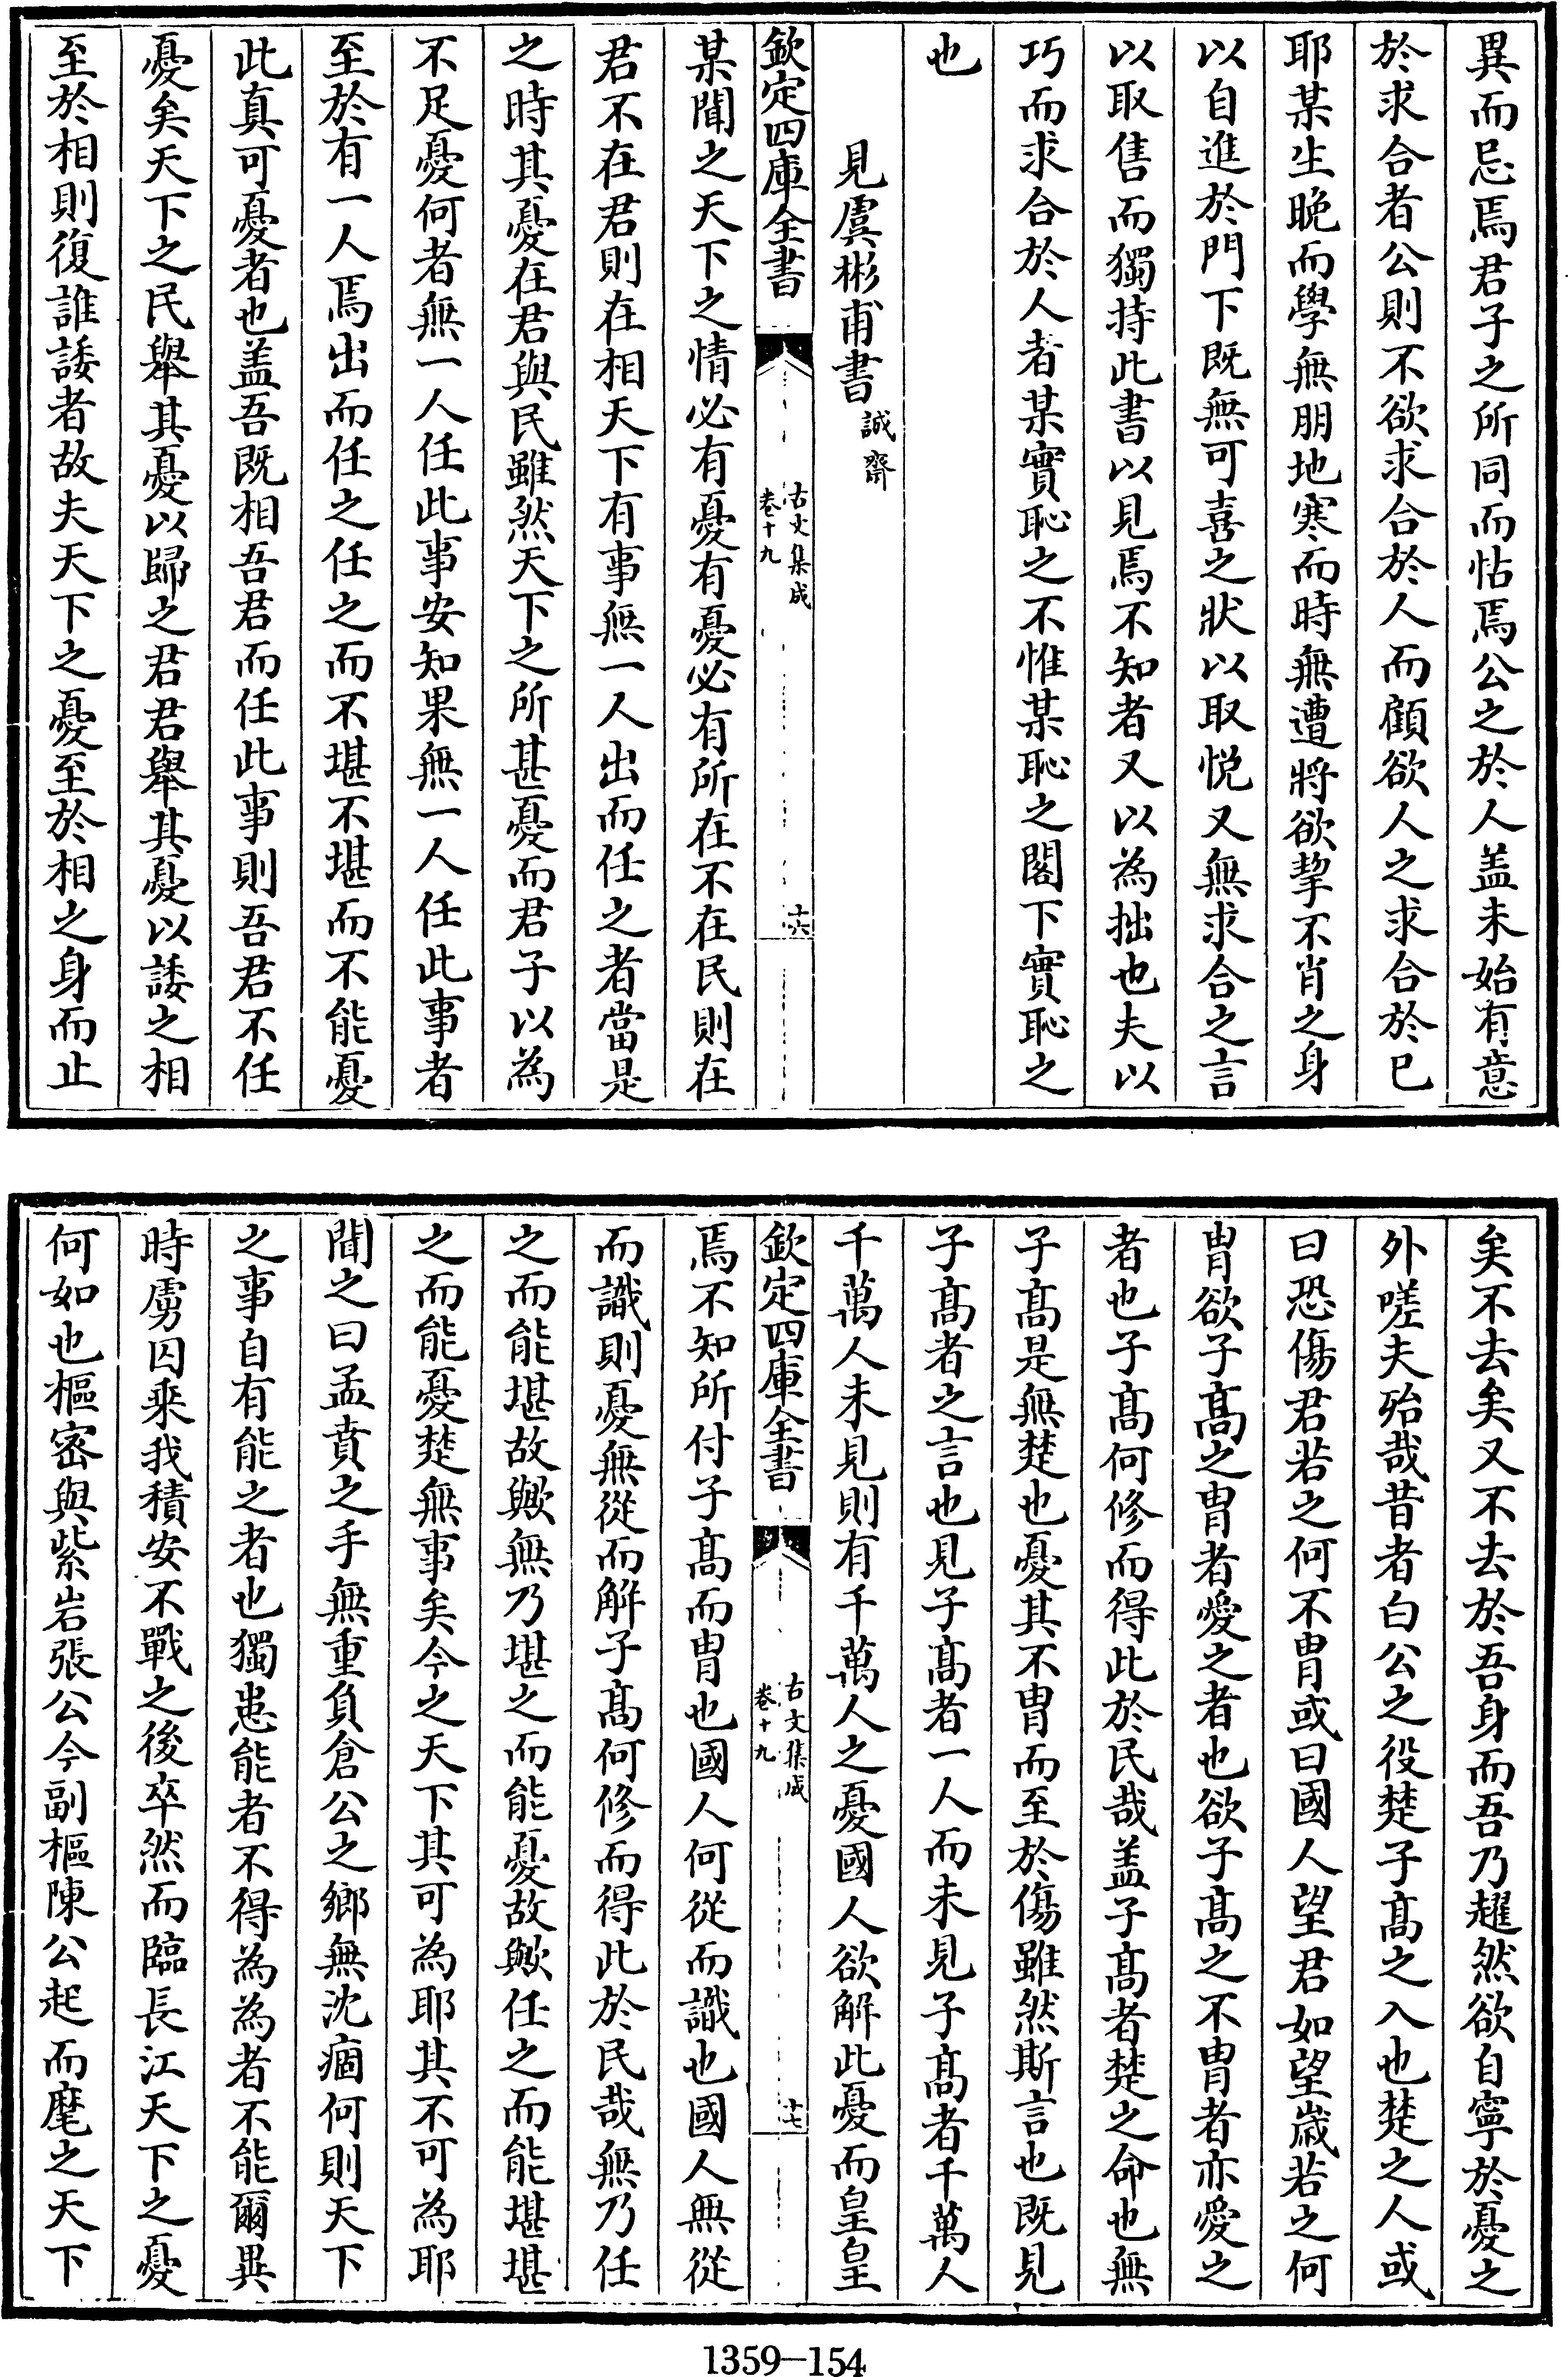 異而忌焉君子之所同而怙焉公之於人盖未始有意
於求合者公則不欲求合於人而顧欲人之求合於已
耶某生晚而學無朋地寒而時無遭將欲挈不肖之身
以自進於門下既無可喜之狀以取悅又無求合之言
以取售而獨持此書以見焉不知者又以為拙也夫以
巧而求合於人者某實恥之不惟某恥之閣下實恥之
也
見虞彬甫書誠齋
欽定四庫全書
古文集成
卷十九
十六
某聞之天下之情必有憂有憂必有所在不在民則在
君不在君則在相天下有事無一人出而任之者當是
之時其憂在君與民雖然天下之所甚憂而君子以為
不足憂何者無一人任此事安知果無一人任此事者
至於有一人焉出而任之任之而不堪不堪而不能憂
此真可憂者也盖吾既相吾君而任此事則吾君不任
憂矣天下之民舉其憂以歸之君君舉其憂以諉之相
至於相則復誰諉者故夫天下之憂至於相之身而止
矣不去矣又不去於吾身而吾乃趯然欲自寧於憂之
外嗟夫殆哉昔者白公之役楚子髙之入也楚之人或
曰恐傷君若之何不胄或曰國人望君如望嵗若之何
胄欲子髙之胄者愛之者也欲子髙之不胄者亦愛之
者也子髙何修而得此於民哉盖子髙者楚之命也無
子髙是無楚也憂其不胄而至於傷雖然斯言也既見
子髙者之言也見子髙者一人而未見子髙者千萬人
千萬人未見則有千萬人之憂國人欲解此憂而皇皇
欽定四庫全書
古文集成
卷十九
十七
焉不知所付子髙而胄也國人何從而識也國人無從
而識則憂無從而解子髙何修而得此於民哉無乃任
之而能堪故歟無乃堪之而能憂故歟任之而能堪堪
之而能憂楚無事矣今之天下其可為耶其不可為耶
聞之曰孟賁之手無重負倉公之鄉無沈痼何則天下
之事自有能之者也獨患能者不得為為者不能爾異
時虜囚乘我積安不戰之後卒然而臨長江天下之憂
何如也樞密與紫岩張公今副樞陳公起而麾之天下
1359-154